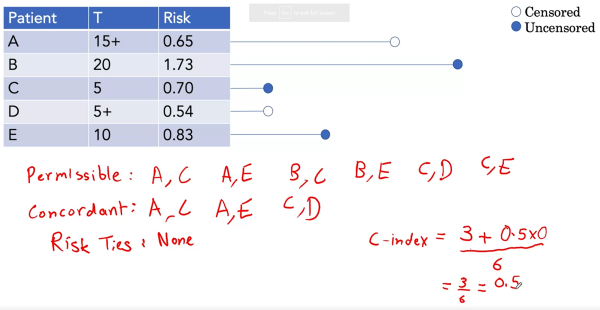 Patient T Risk
A 15+ 0.65
B 20 1.73
C 5 0.70
D 5+ 0.54
E 10 0.83
Censored
Uncensored
Permissible: A,C A,E B,C B,E C,D C,E
Concordant: A,C A,E C,D
Risk Ties: None
C-index = 3 + 0.5x0
6
= 3/6 = 0.5